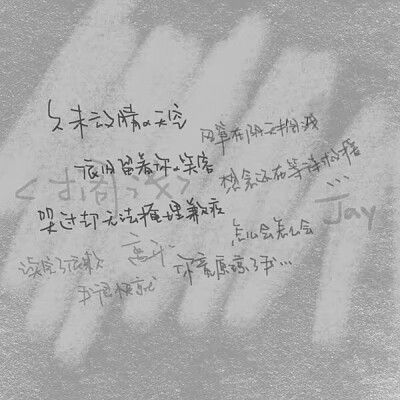 久未放晴的天空
风筝在阴天搁浅
依旧留着你的笑容
想念还在等待救援
<搁浅>
...
Jay
哭过却无法掩埋歉疚
怎么会怎么会
你竟原谅了我...
读完了依赖
我很快就
离开